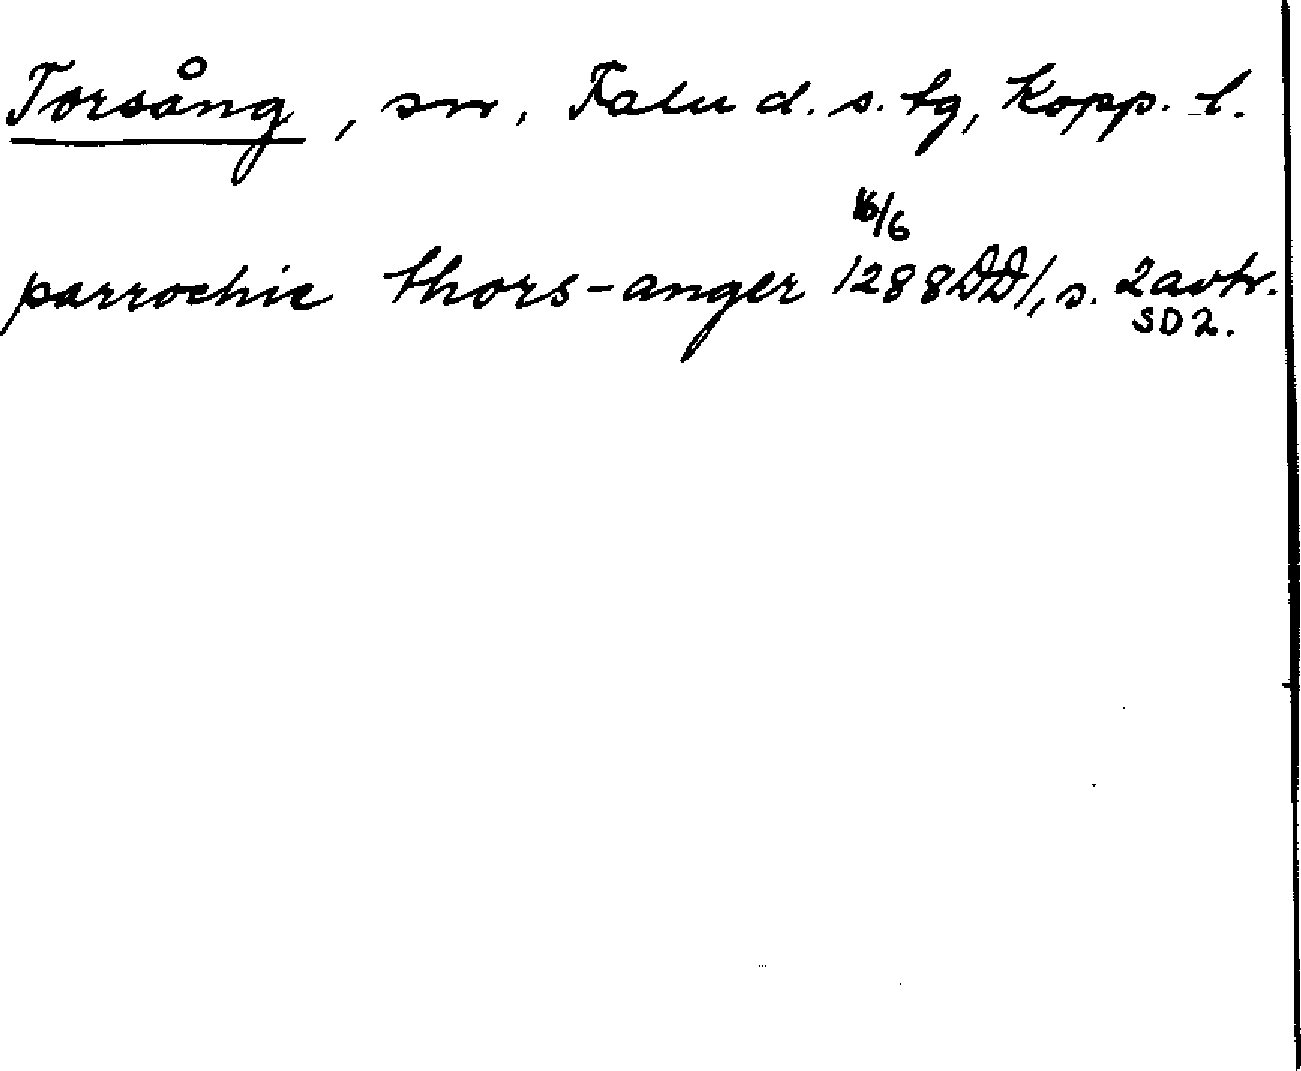 Torsång, sn, Falu d. s. tg, Kopp. l.
16/6
parrochie thors-anger 1288 DD1, s. 2 avtr.
SD 2.